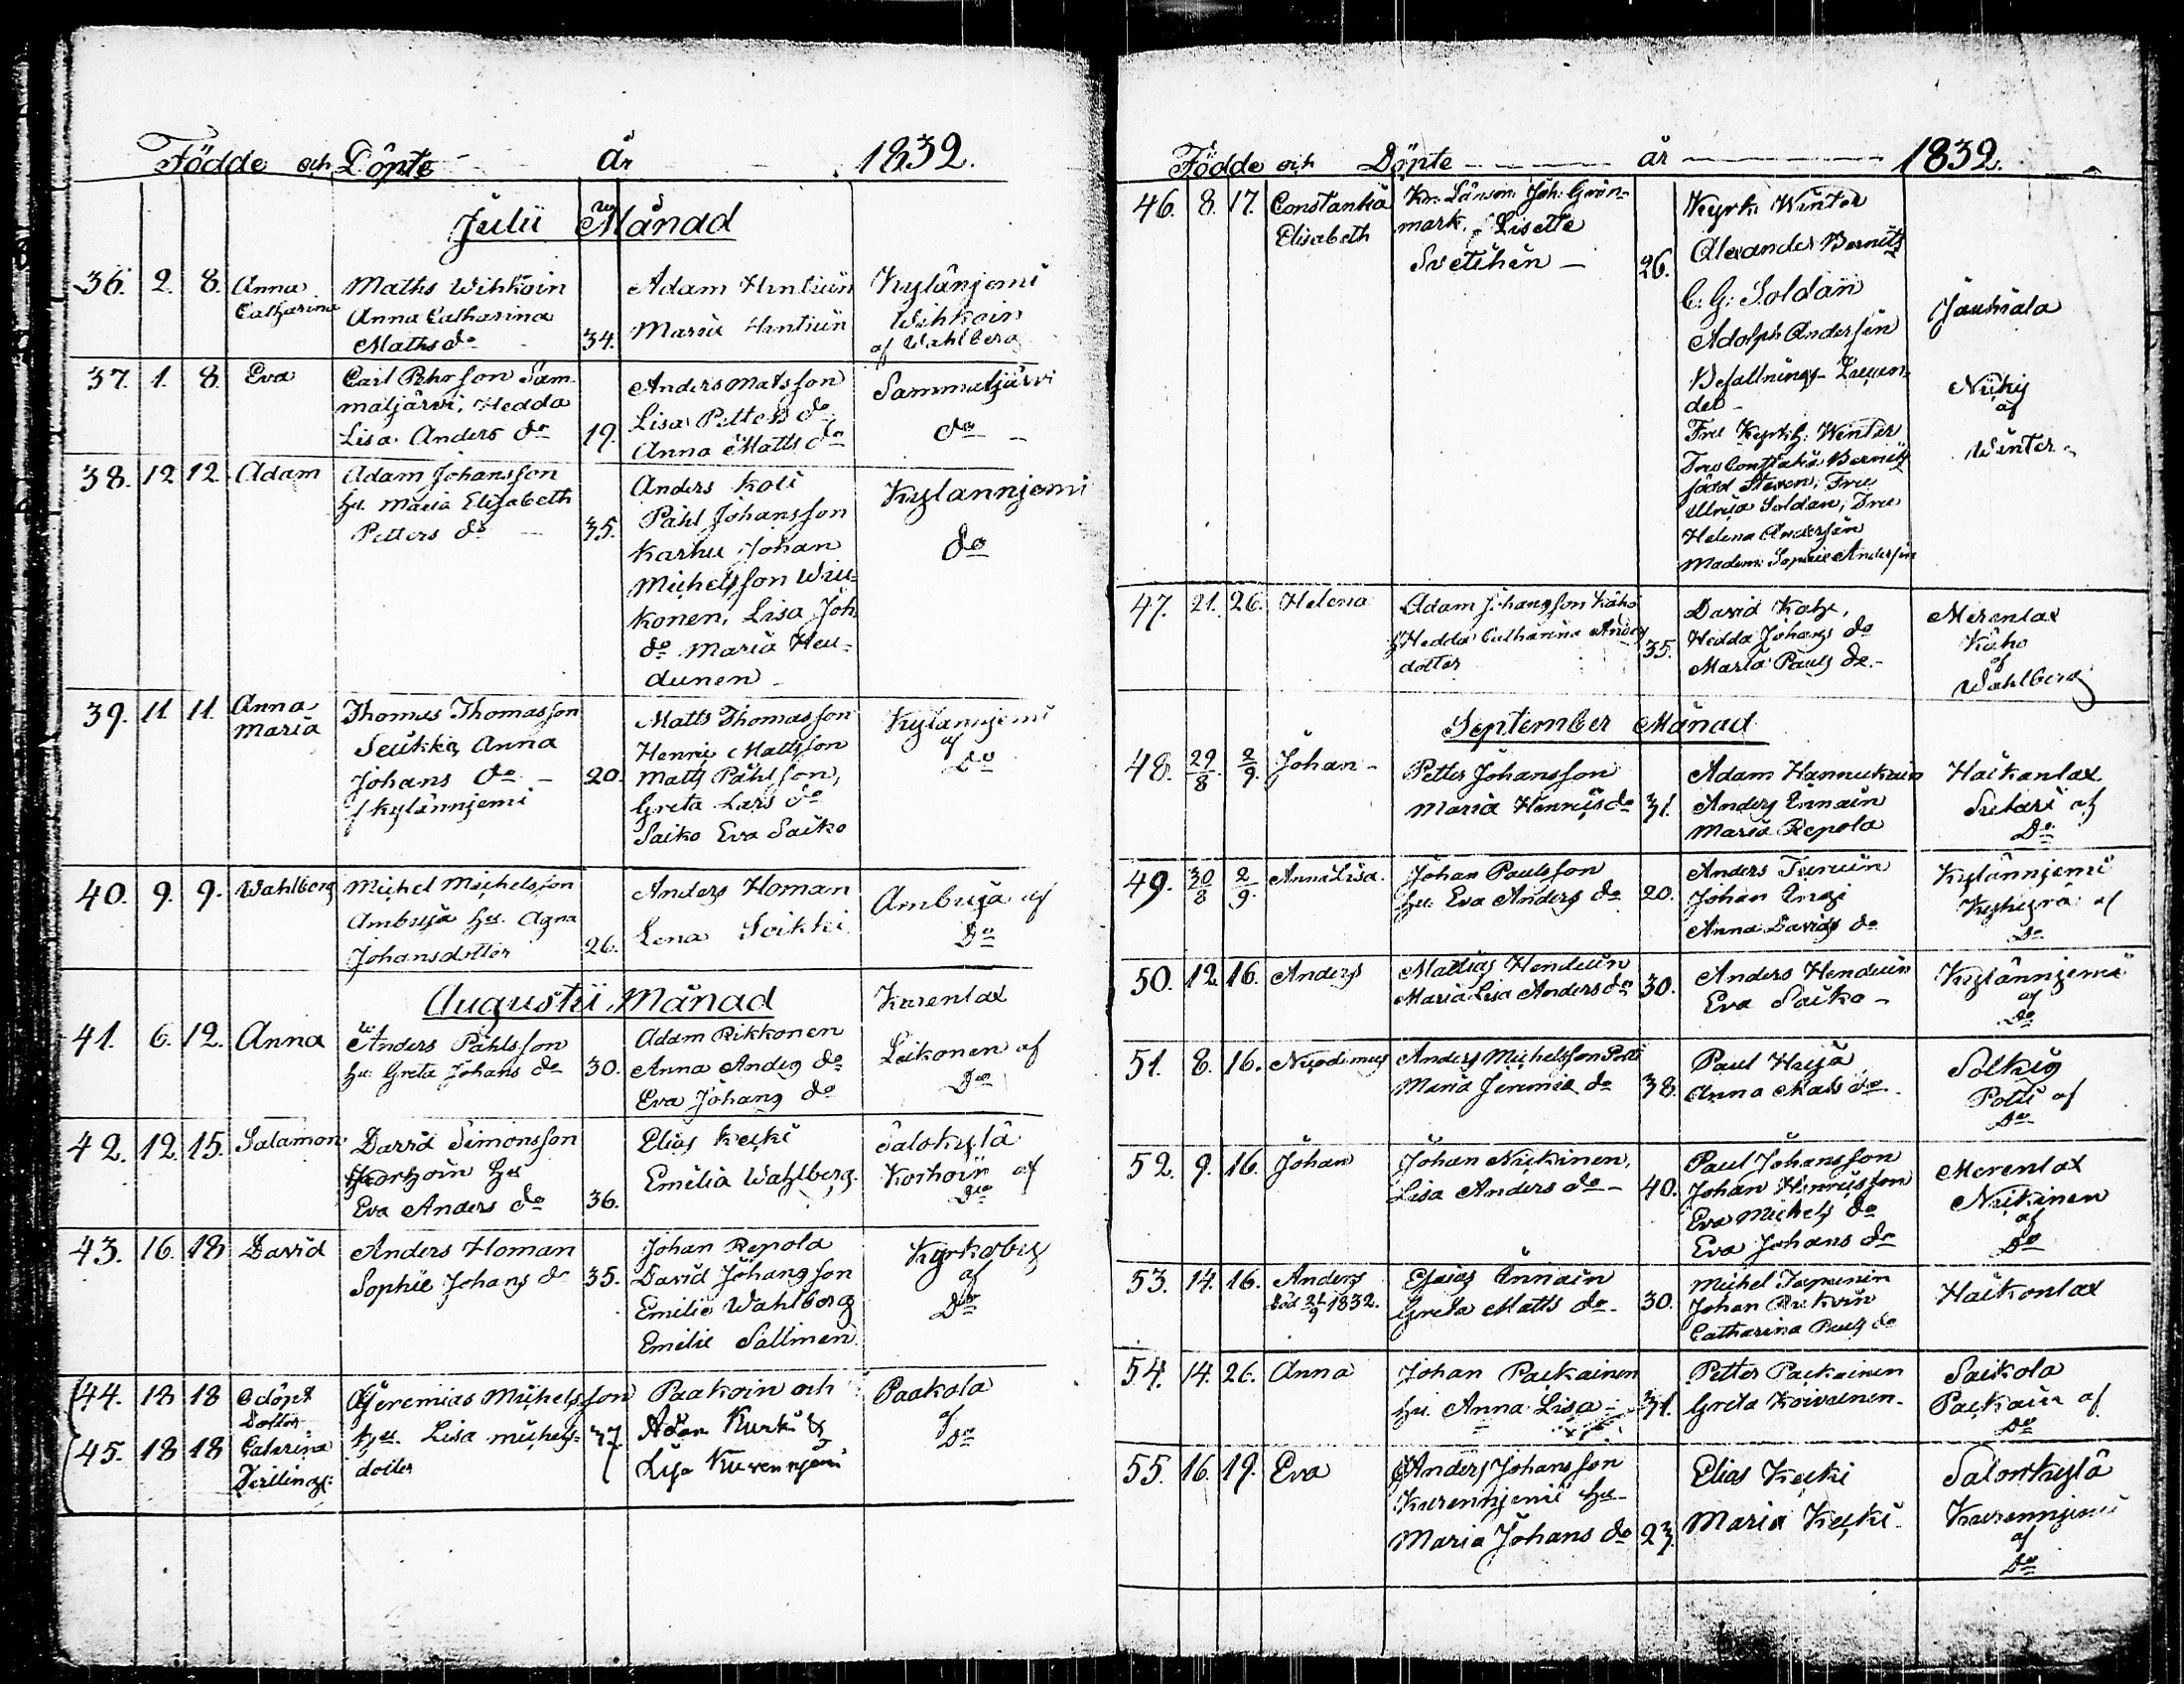 Födde och Döpte år 1832.
Julii Månad
36. 2. 8. Anna Catharina
Maths Wihkoin
Anna Catharina
Maths do 34.
Adam Hintiuin
Maria Hintiuin
Kylänjemi
Wihkoin
af Wahlberg
37. 1. 8. Eva
Carl Pehrsson Sam
maljärvi, Hedda
Lisa Anders do 19.
Anders Matsson
Lisa Petters do
Anna Matts do
Sammaljärvi
do
38. 12 12. Adam
Adam Johansson
hu. Maria Elisabeth
Petters do 35.
Anders Koli
Påhl Johansson
Karhu Johan
Michelsson Wiu-
konen, Lisa Joh.
do Maria Heu-
dunen
Kylännjemi
do
39. 11. 11. Anna Maria
Thomas Thomasson
Seukko, Anna
Johans do 20.
f Kylännjemi
Matts Thomasson
Henric Mattsson
Matts Påhlsson,
Greta Lars do
Saiko Eva Saiko
Kylännjemi
af
Do
40. 9. 9. Wahlberg
Michel Michelsson
Ambuja hu. Agna
Johansdotter 26.
Anders Homan
Lena Soikki
Ambuja af
Do
Augustii Månad
41. 6. 12. Anna
Anders Påhlsson
hu. Greta Johans do 30.
Adam Rikkonen
Anna Anders do
Eva Johans do
Kurenlax
Loikonen af
Do
42. 12. 15. Salamon
David Simonsson
Korhoin hu
Eva Anders do 36.
Elias Keski
Emilia Wahlberg.
Salokylä
Korhoin af
Do
43. 16. 18 David
Anders Homan
Sophie Johans do 35.
Johan Repola
David Johansson
Emilie Wahlberg
Emilie Sallinen
Kyrkoby
af
Do
44. 18 18 Odöpt Dotter
45. 18 18 Catarina Tvilling.
Jeremias Michelsson
hu. Lisa Michels-
dotter 37
Paakoin och
Adam Kurki &
Lisa Kurennjemi
Paakola
af
Do
Födde och Döpte år 1832.
46. 8. 17. Constantia Elisabeth
Kr. Länsm. Joh. Grön-
mark, f Lisette
Svetihin 26.
Kyrkh Winter
Alexander Bernitz
C. G. Soldan
Adolph Andersin
Befallnings-
det
Fru Kyrkh. Winter
Fru Constantia Bernitz
född Steven, Fru
Ullrica Soldan, Fru
Helena Andersin
Madem: Sophie Andersin
Jauhiala
Niiky
af
Winter
47. 21. 26. Helena
Adam Johansson Käho
Hedda Catharina Anders
dotter 35.
David Kähö,
Hedda Johans do
Maria Pauls do.
Merenlax
Käho
af
Wahlberg
September Månad
48. 29/8 2/9. Johan
Petter Johansson
Maria Henrics do 31.
Adam Hannukain
Anders Ennain
Maria Repola
Haikanlax
Sutari af
Do
49. 30/8 2/9. Anna Lisa.
Johan Paulsson
hu. Eva Anders do 20.
Anders Turuin
Johan
Anna Davids do
Kylännjemi
af
Do
50. 12. 16. Anders
Mattias Henduin
Maria Lisa Anders do 30.
Anders Henduin
Eva Saiko
Kylännjemi
af
Do
51. 8. 16. Nicodimus
Anders Michelsson Potti
Maria Jeremia do 38.
Paul Huja
Anna Mats do
Solkig
Potti af
Do
52. 9. 16. Johan
Johan Nuikinen,
Lisa Anders do 40.
Paul Johansson
Johan Henricsson
Eva Michels do
Eva Johans do
Merenlax
Nuikinen
af
Do
53. 14. 16. Anders
död 21/9 1832.
Esaias Ännain
Greta Matts do 30.
Michel Tapanin
Johan
Catharina Pauls do
Haikonlax
54. 14. 26. Anna
Johan Packainen
hu. Anna Lisa 31.
Petter Packainen
Greta Koivunen.
Saikola
Packain af
Do
55. 16. 19. Eva
Anders Johansson
Kurennjemi hu
Maria Johans do 23.
Elias Keski
Maria Keski
Salonkylä
Kurennjemi
af
Do